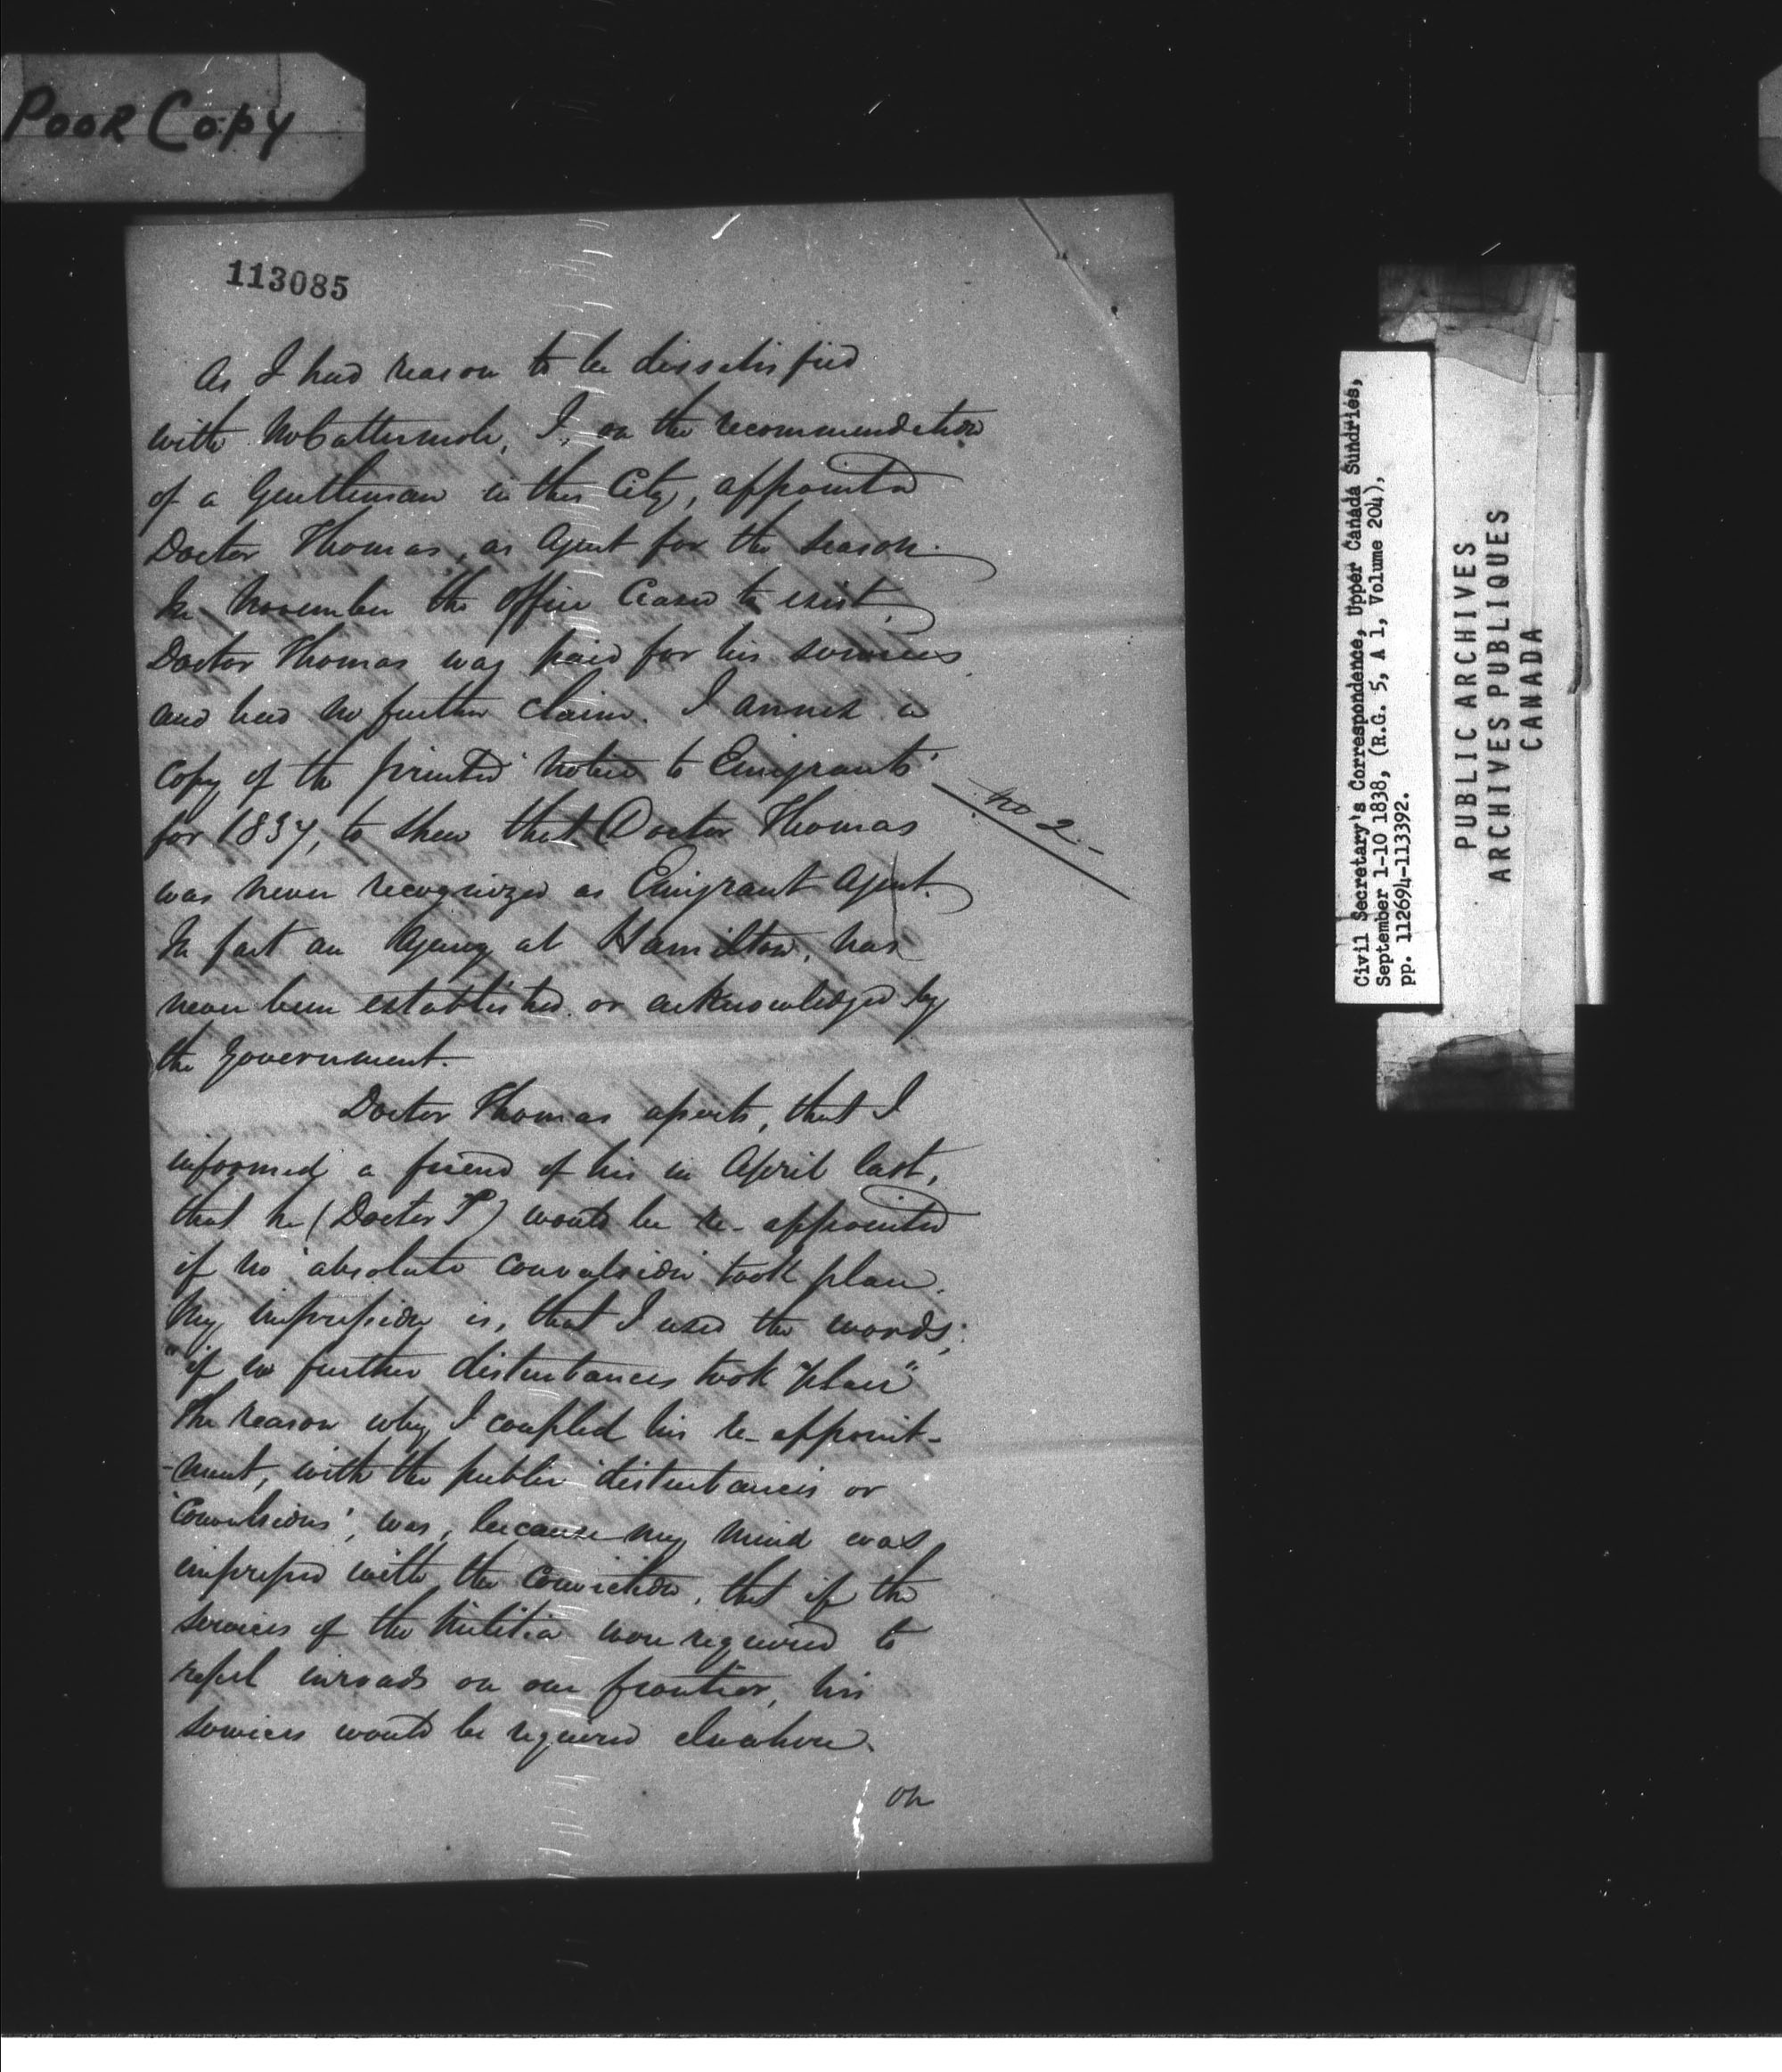 POOR COPY
113085
As I had reason to be dissatisfied
with Mr Cattermole, I, on the recommendation
of a Gentleman in this City, appointed
Doctor Thomas, as Agent for the season.
In November the office Ceased to exist,
Doctor Thomas was paid for his services
and had no further Claim. I annex a
Copy of the printed notice to Emigrants
for 1837, to shew that Doctor Thomas
No 2.-
was never recognized as Emigrant Agent.
In fact an Agency at Hamilton, has
never been established or acknowledged by
the Government.
Doctor Thomas asserts, that I
informed a friend of his in April last,
that he (Doctor T) would be re-appointed
if no absolute convulsion took place.
My impression is, that I used the words;
"if no further disturbances took place"
The reason why I coupled his re-appoint-
-ment, with the public disturbances or
'Convulsions', was, because my mind was
impressed with the Conviction, that if the
services of the Militia were required to
repel inroads on our frontier, his
services would be required elsewhere.
on
Civil Secretary's Correspondence, Upper Canada Sundries,
September 1-10 1838, (R.G. 5, A 1, Volume 204),
pp. 112694-113392.
PUBLIC ARCHIVES
ARCHIVES PUBLIQUES
CANADA